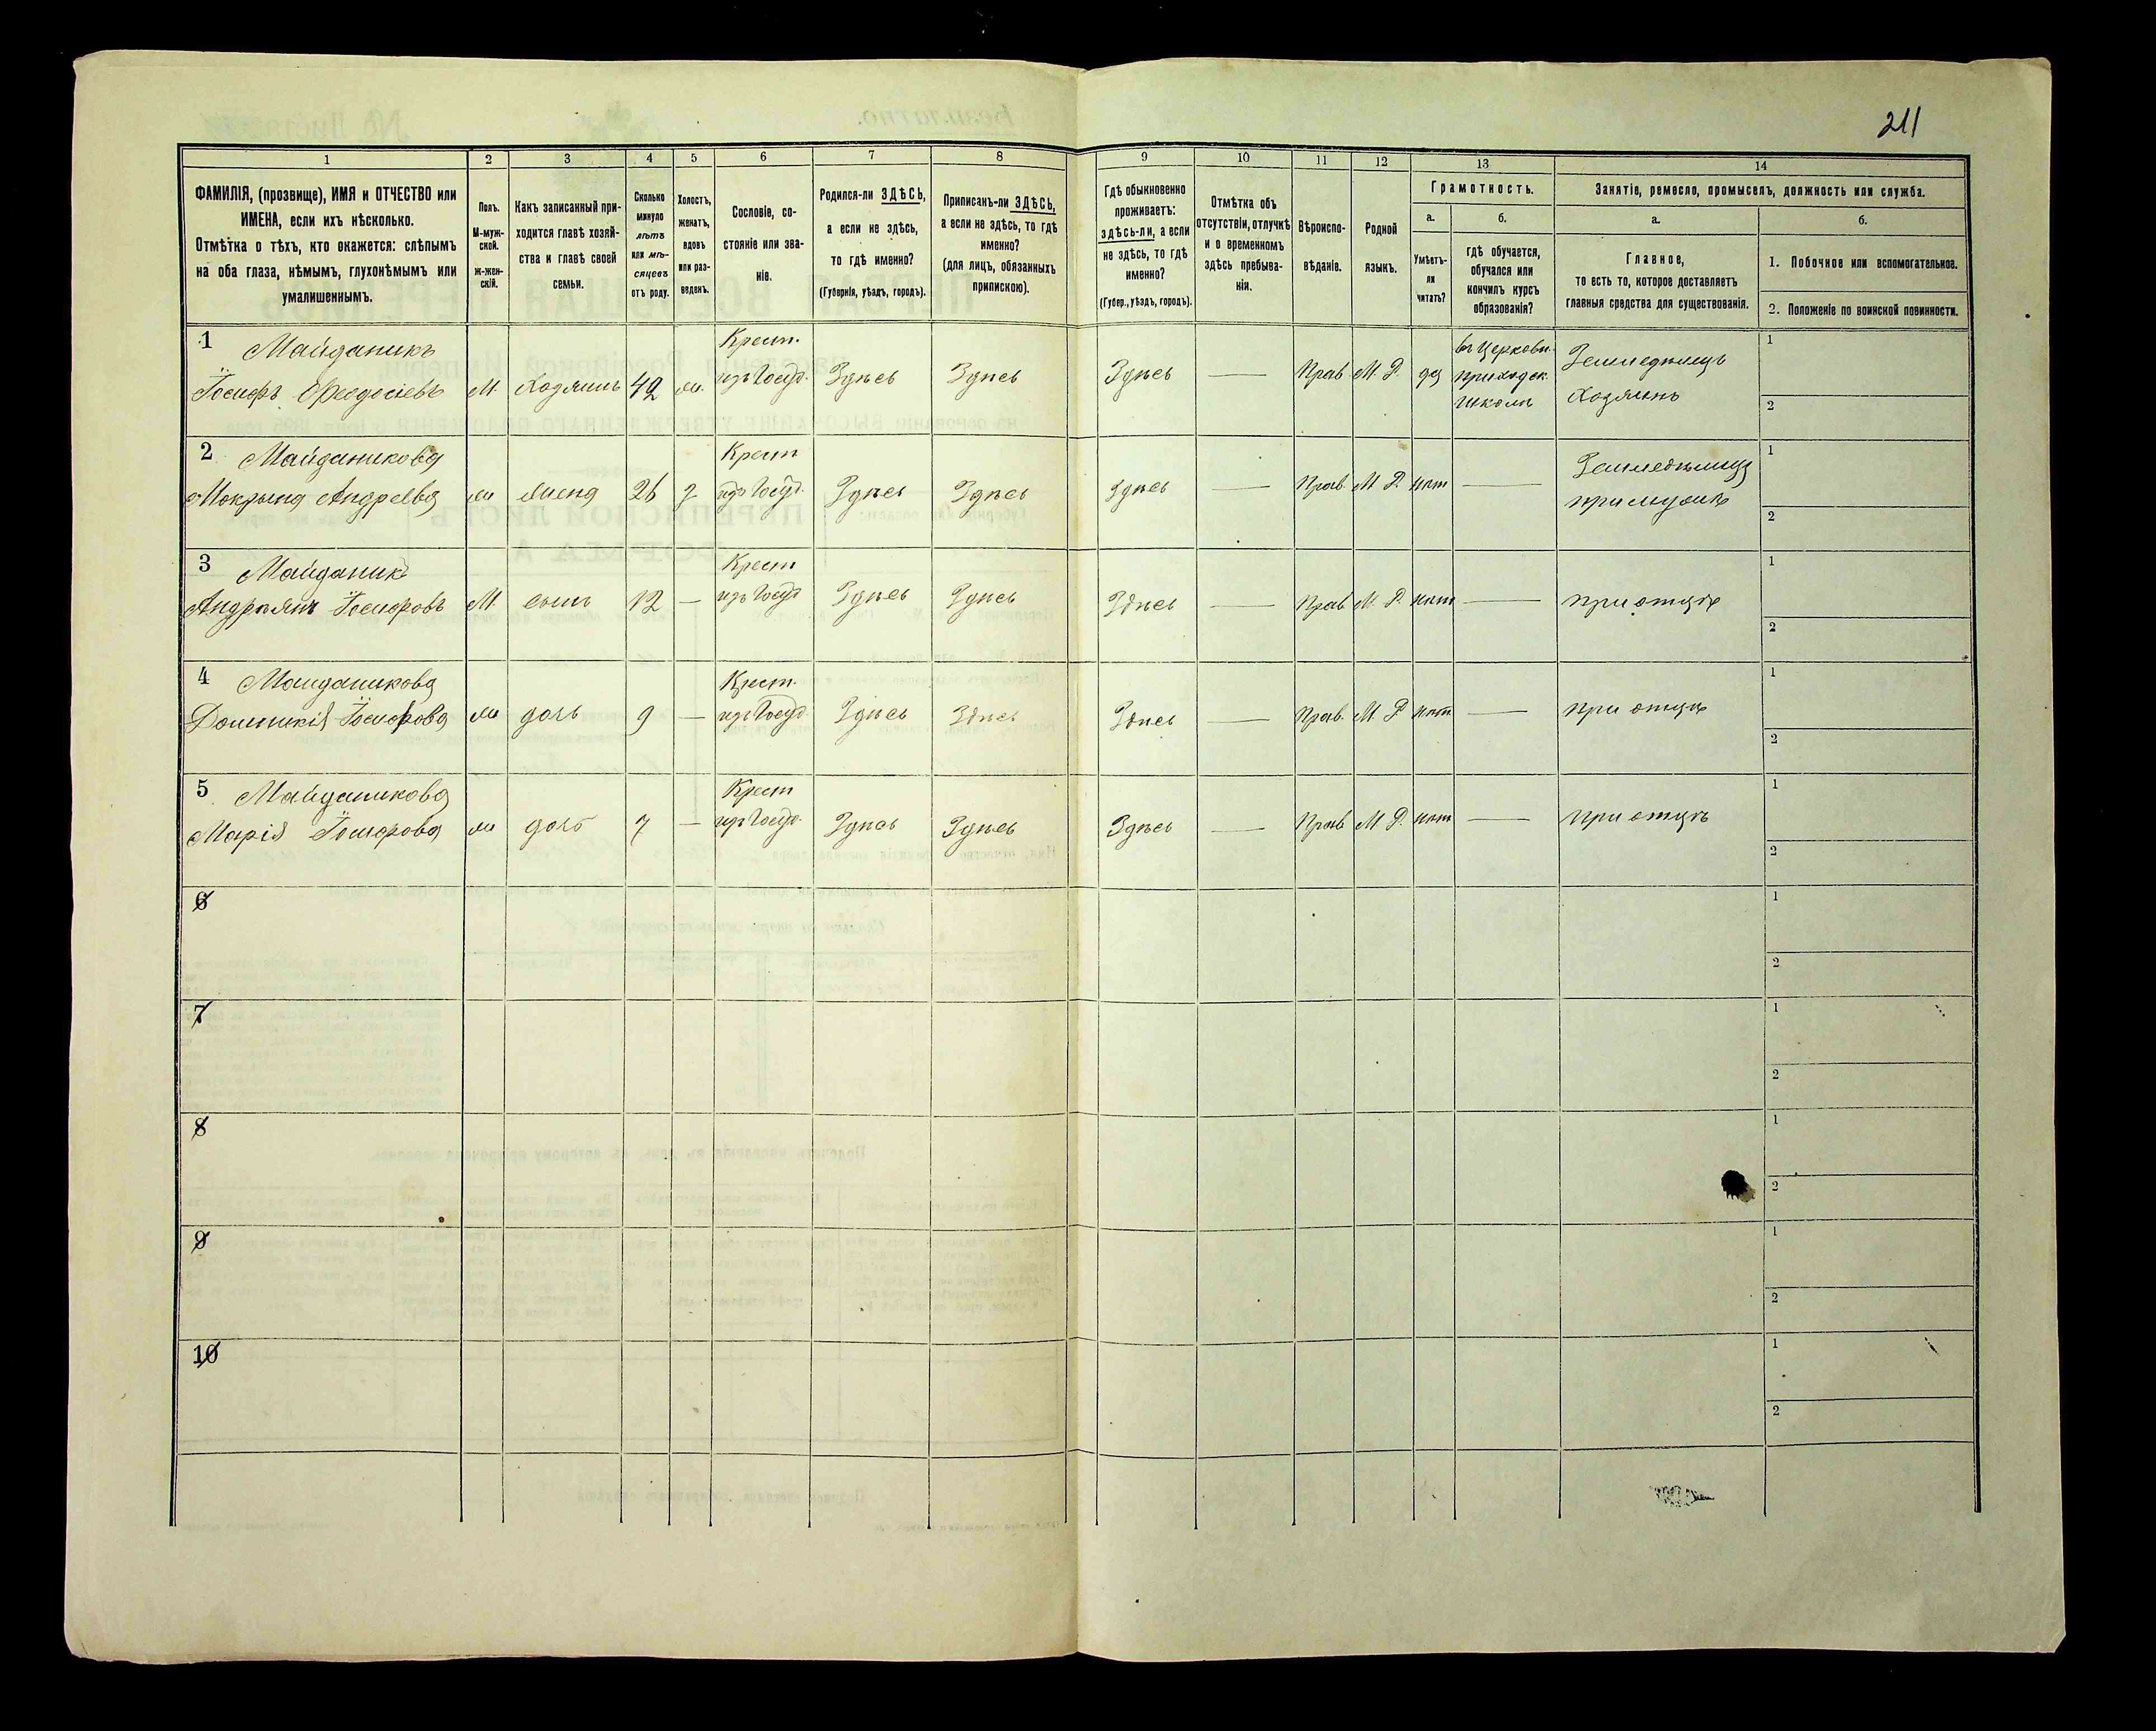 211
1 2 3 4 5 6 7 8 9 10 11 12 13 14
ФАМИЛІЯ, (прозвище), ИМЯ и ОТЧЕСТВО или
ИМЕНА, если ихъ нѣсколько.
Отмѣтка о тѣхъ, кто окажется: слѣпымъ
на оба глаза, нѣмымъ, глухонѣмымъ или
умалишеннымъ.
Полъ.
М-муж-
ской.
Ж-жен-
скій.
Какъ записанный при-
ходится главѣ хозяй-
ства и главѣ своей
семьи.
Сколько
минуло
лѣтъ
или мѣ-
сяцевъ
отъ роду.
Холостъ,
женатъ,
вдовъ
или раз-
веденъ.
Сословіе, со-
стояніе или зва-
ніе.
Родился-ли ЗДѢСЬ,
а если не здѣсь,
то гдѣ именно?
(Губернія, уѣздъ, городъ).
Приписанъ-ли ЗДѢСЬ,
а если не здѣсь, то гдѣ
именно?
(для лицъ, обязанныхъ
припискою).
Гдѣ обыкновенно
проживаетъ:
здѣсь-ли, а если
не здѣсь, то гдѣ
именно?
(Губер., уѣздъ, городъ).
Отмѣтка объ
отсутствіи, отлучкѣ
и о временномъ
здѣсь пребыва-
ніи.
Вѣроиспо-
вѣданіе.
Родной
языкъ.
Грамотность.
а.
Умѣетъ-
ли
читать?
б.
гдѣ обучается,
обучался или
кончилъ курсъ
образованія?
Занятіе, ремесло, промыселъ, должность или служба.
а.
Главное,
то есть то, которое доставляетъ
главныя средства для существованія.
б.
1. Побочное или вспомогательное.
2. Положеніе по воинской повинности.
1 Майданикъ Крест. въ Церковн. Земледѣлецъ 1
Іосифъ Ѳеодосіевъ М. Хозяинъ 42 ж. изъ Госуд. Здѣсь Здѣсь Здѣсь — Прав М. Р. да приходск. Хозяинъ
школѣ 2
2 Майданикова Крест Земледѣлица 1
Мокрына Андреева ж жена 26 з изъ Госуд. Здѣсь Здѣсь Здѣсь — Прав. М. Р. нѣт — при мужѣ 2
3 Майданикъ Крест 1
Андріянъ Іосифовъ М. сынъ 12 — изъ Госуд Здѣсь Здѣсь Здѣсь — Прав М. Р. нѣт — при отцѣ 2
4 Майданикова Крест. 1
Домникія Іосифова ж дочь 9 — изъ Госуд. Здѣсь Здѣсь Здѣсь — Прав. М. Р нѣт — при отцѣ 2
5 Майданикова Крест 1
Марія Іосифова ж дочь 7 — изъ Госуд. Здѣсь Здѣсь Здѣсь — Прав М Р. нѣт — при отцѣ 2
6 1
2
7 1
2
8 1
2
9 1
2
10 1
2